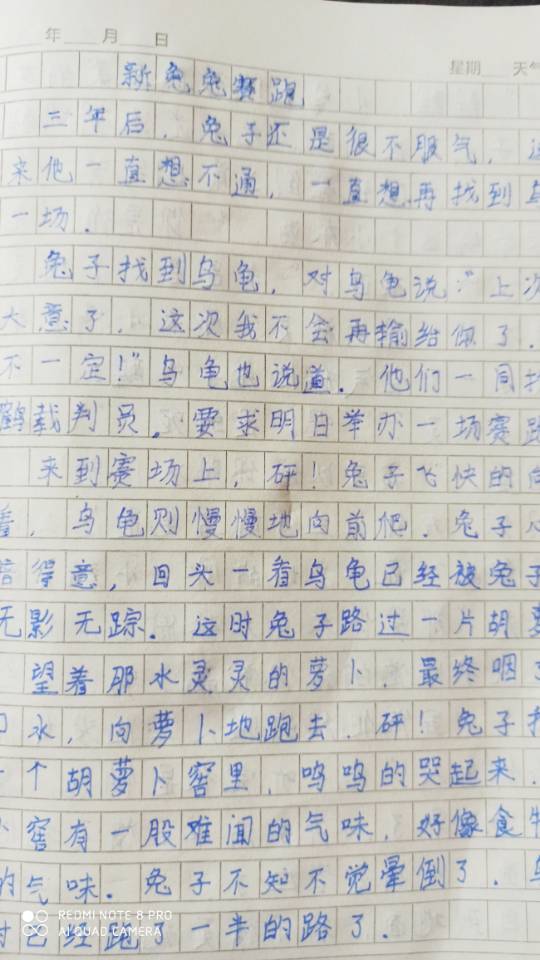 年 月 日
星期 天气
新龟兔赛跑
三年后，兔子还是很不服气，这
来他一直想不通，一直想再找到乌
一场．
兔子找到乌龟，对乌龟说："上次
大意了，这次我不会再输给你了．
不一定！"乌龟也说道．他们一同找
鹤裁判员．要求明日举办一场赛跑
来到赛场上，砰！兔子飞快的向
着，乌龟则慢慢地向前爬．兔子心
得意，回头一看乌龟已经被兔子
无影无踪．这时兔子路过一片胡萝
望着那水灵灵的萝卜，最终咽了
口水，向萝卜地跑去．砰！兔子
一个胡萝卜窖里，呜呜的哭起来．
小窖有一股难闻的气味，好像食物
的气味．兔子不知不觉晕倒了．乌
已经跑了一半的路了．
REDMI NOTE 8 PRO
AI QUAD CAMERA